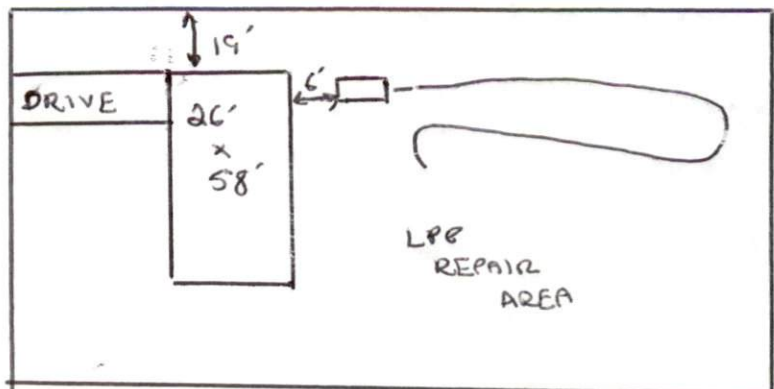 19'
6'
DRIVE
26'
x
58'
LPP
REPAIR
AREA